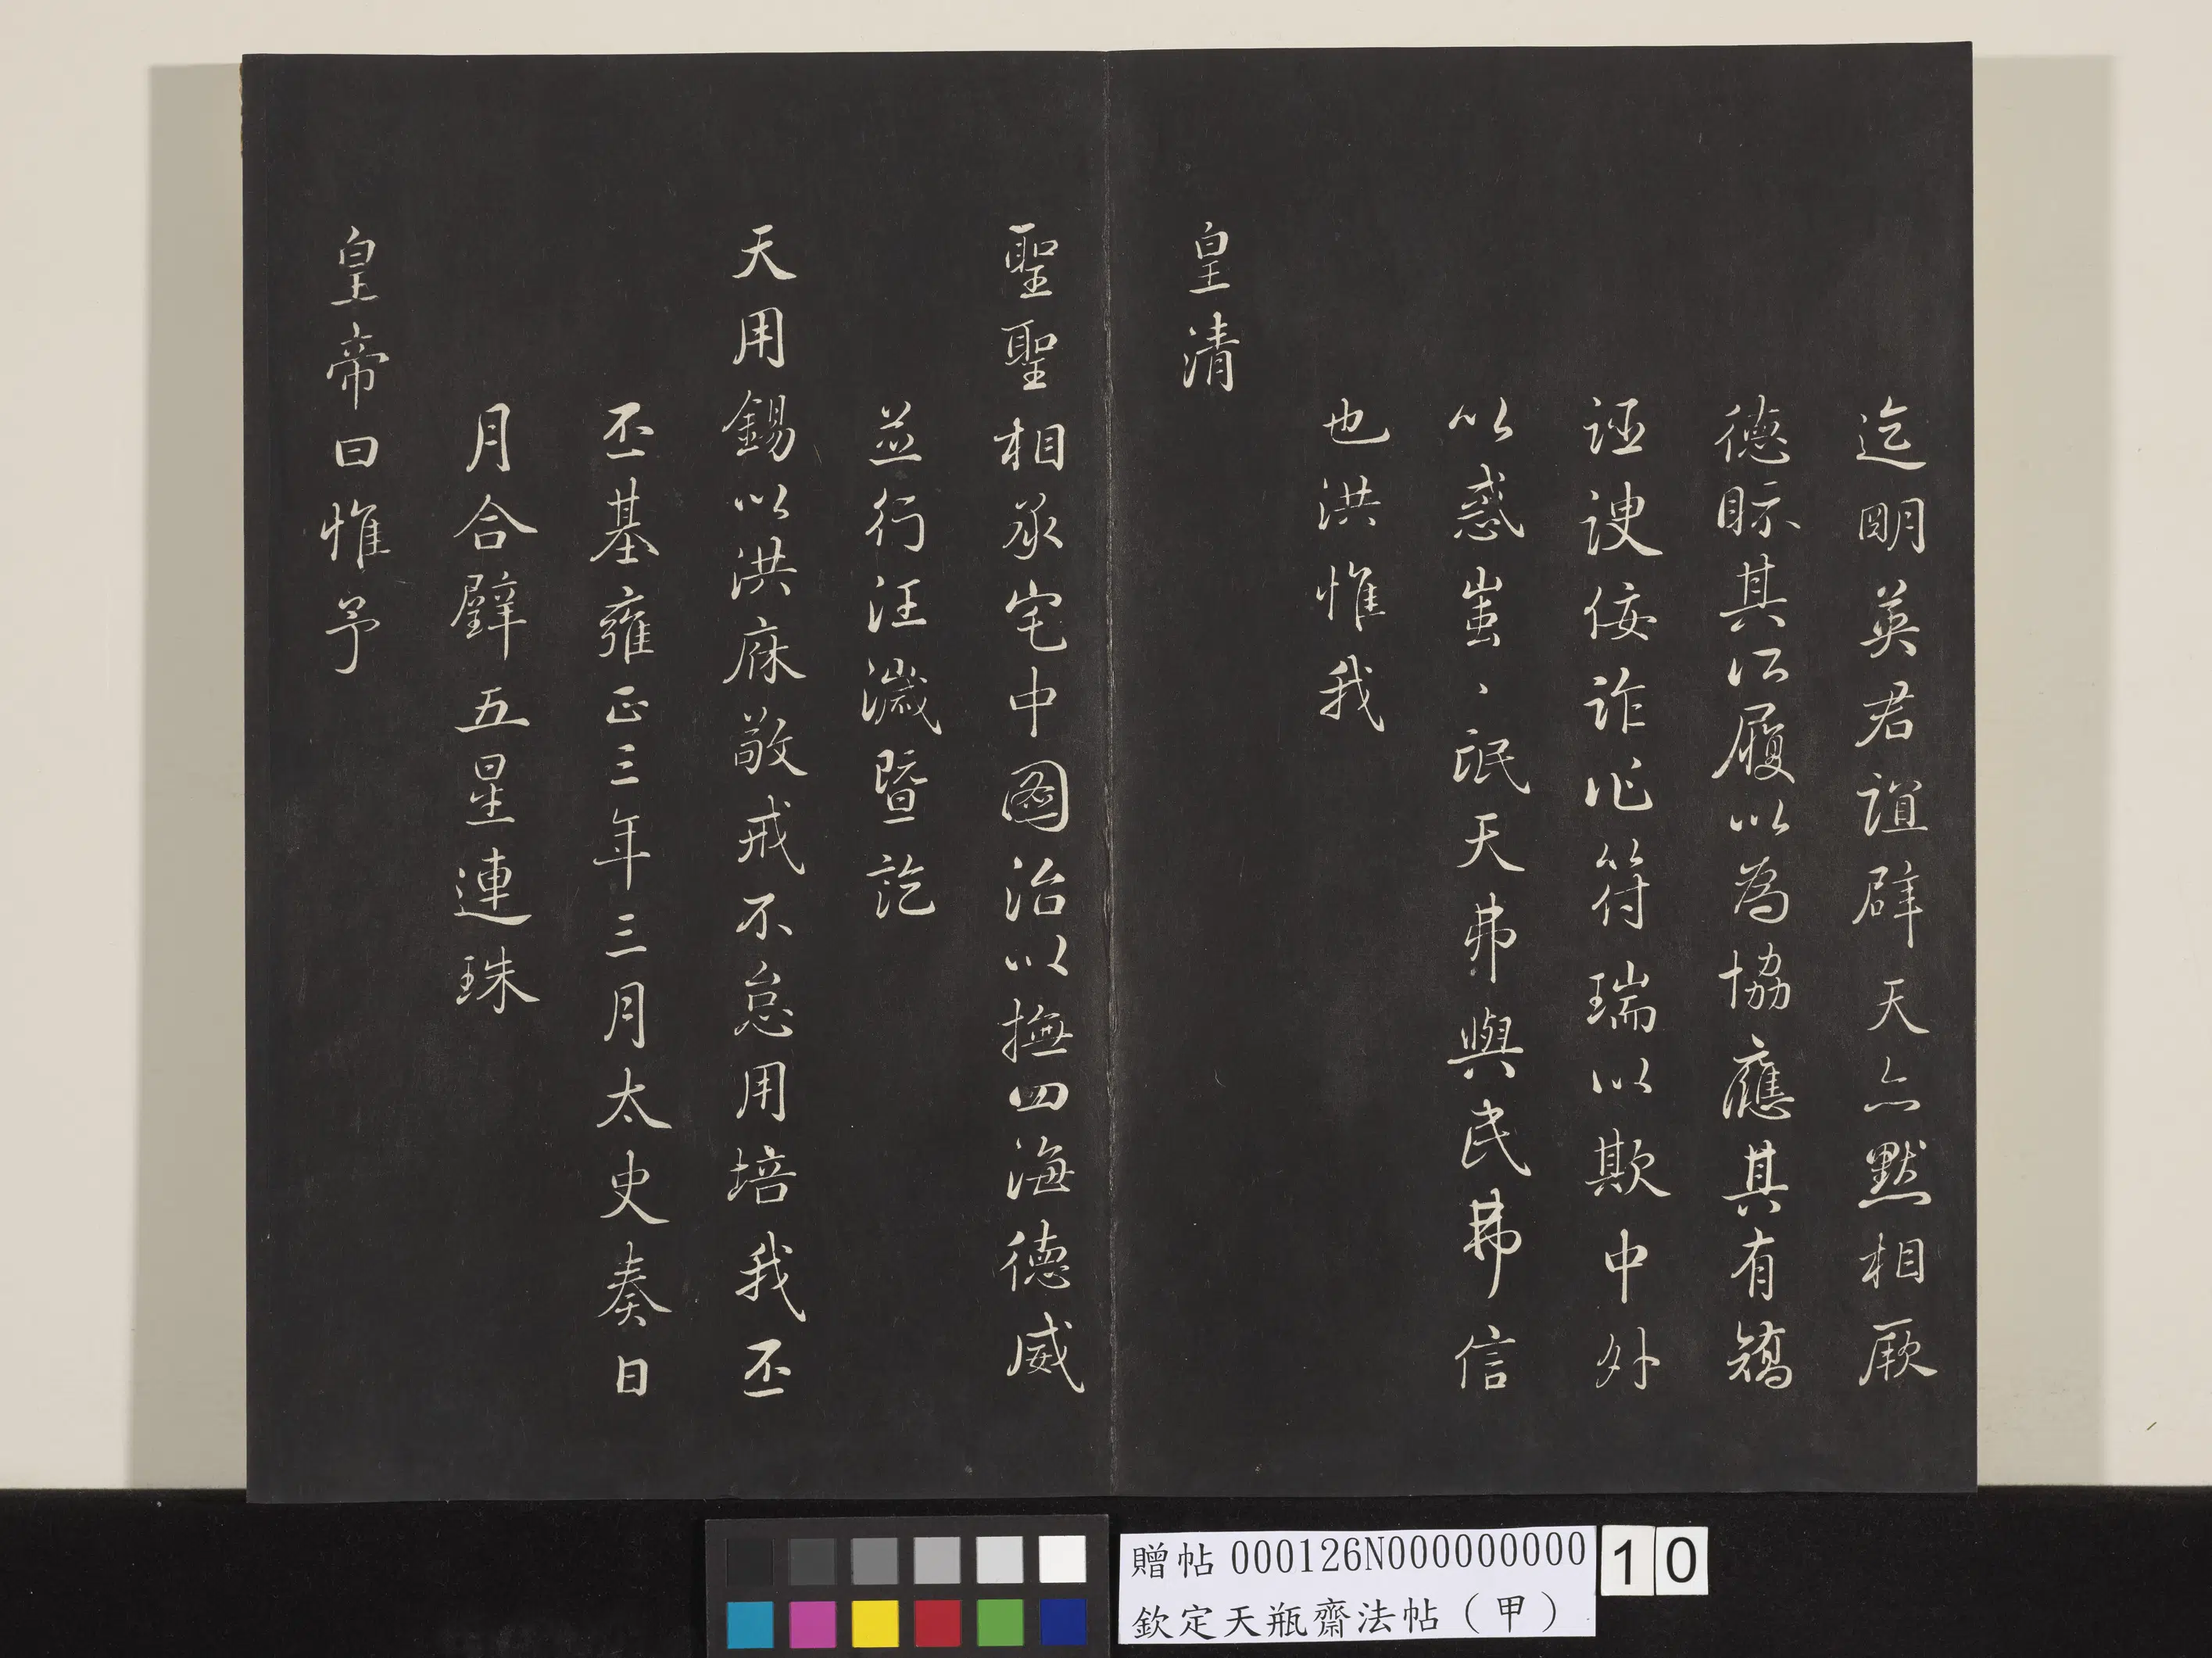 迄明英君誼辟天亦默相厥
德眎其所履以為協應其有矯
誣諛佞詐作符瑞以欺中外
以惑蚩、氓天弗與民弗信
也洪惟我
皇清
聖聖相承宅中圖治以撫四海德威
並行汪濊暨訖
天用錫以洪庥敬戒不怠用培我丕
丕基雍正三年三月太史奏日
月合璧五星連珠
皇帝曰惟予
贈帖 000126N000000000 10
欽定天瓶齋法帖（甲）